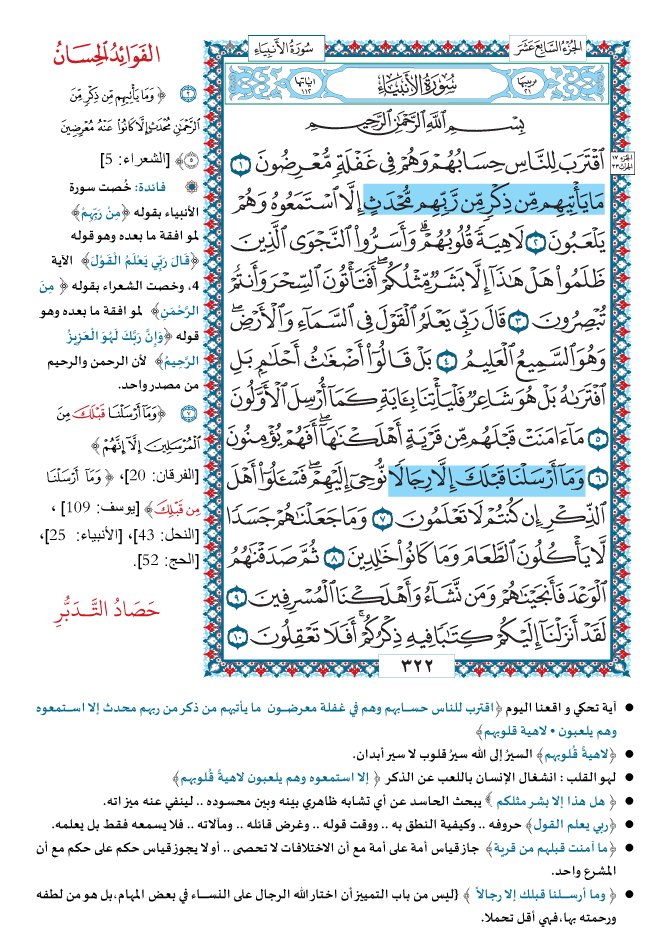 الجُزءُ السَّابِعَ عَشَرَ
سُورَةُ الأَنبِيَاءِ
ترتيبها ٢١
سُورَةُ الأَنبِيَاءِ
اياتها ١١٢
بِسْمِ ٱللَّهِ ٱلرَّحْمَٰنِ ٱلرَّحِيمِ
ٱقْتَرَبَ لِلنَّاسِ حِسَابُهُمْ وَهُمْ فِي غَفْلَةٍ مُّعْرِضُونَ ١
مَا يَأْتِيهِم مِّن ذِكْرٍ مِّن رَّبِّهِم مُّحْدَثٍ إِلَّا ٱسْتَمَعُوهُ وَهُمْ
يَلْعَبُونَ ٢ لَاهِيَةً قُلُوبُهُمْ ۗ وَأَسَرُّوا۟ ٱلنَّجْوَى ٱلَّذِينَ
ظَلَمُوا۟ هَلْ هَٰذَآ إِلَّا بَشَرٌ مِّثْلُكُمْ ۖ أَفَتَأْتُونَ ٱلسِّحْرَ وَأَنتُمْ
تُبْصِرُونَ ٣ قَالَ رَبِّي يَعْلَمُ ٱلْقَوْلَ فِي ٱلسَّمَآءِ وَٱلْأَرْضِ ۖ
وَهُوَ ٱلسَّمِيعُ ٱلْعَلِيمُ ٤ بَلْ قَالُوٓا۟ أَضْغَٰثُ أَحْلَٰمٍۭ بَلِ
ٱفْتَرَىٰهُ بَلْ هُوَ شَاعِرٌ فَلْيَأْتِنَا بِـَٔايَةٍ كَمَآ أُرْسِلَ ٱلْأَوَّلُونَ
٥ مَآ ءَامَنَتْ قَبْلَهُم مِّن قَرْيَةٍ أَهْلَكْنَٰهَآ ۖ أَفَهُمْ يُؤْمِنُونَ
٦ وَمَآ أَرْسَلْنَا قَبْلَكَ إِلَّا رِجَالًا نُّوحِىٓ إِلَيْهِمْ ۖ فَسْـَٔلُوٓا۟ أَهْلَ
ٱلذِّكْرِ إِن كُنتُمْ لَا تَعْلَمُونَ ٧ وَمَا جَعَلْنَٰهُمْ جَسَدًا
لَّا يَأْكُلُونَ ٱلطَّعَامَ وَمَا كَانُوا۟ خَٰلِدِينَ ٨ ثُمَّ صَدَقْنَٰهُمُ
ٱلْوَعْدَ فَأَنجَيْنَٰهُمْ وَمَن نَّشَآءُ وَأَهْلَكْنَا ٱلْمُسْرِفِينَ ٩
لَقَدْ أَنزَلْنَآ إِلَيْكُمْ كِتَٰبًا فِيهِ ذِكْرُكُمْ ۖ أَفَلَا تَعْقِلُونَ ١٠
٣٢٢
الفَوَائِدُ الحِسَانُ
٢ ﴿ وَمَا يَأْتِيهِم مِّن ذِكْرٍ مِّنَ
ٱلرَّحْمَٰنِ مُحْدَثٍ إِلَّا كَانُوا۟ عَنْهُ مُعْرِضِينَ
٥﴾ [الشعراء: 5]
فائدة: خُصت سورة
الأنبياء بقوله ﴿مِنْ رَبِّهِمْ﴾
لموافقة ما بعده وهو قوله
﴿قَالَ رَبِّي يَعْلَمُ الْقَوْلَ﴾ الآية
4، وخصت الشعراء بقوله ﴿ مِنَ
الرَّحْمَنِ ﴾ لموافقة ما بعده وهو
قوله ﴿وَإِنَّ رَبَّكَ لَهُوَ الْعَزِيزُ
الرَّحِيمُ﴾ لأن الرحمن والرحيم
من مصدر واحد.
٧ ﴿وَمَا أَرْسَلْنَا قَبْلَكَ مِنَ
الْمُرْسَلِينَ إِلَّا إِنَّهُمْ ﴾
[الفرقان: 20]، ﴿ وَمَا أَرْسَلْنَا
مِن قَبْلِكَ ﴾ [يوسف: 109] ،
[النحل: 43]، [الأنبياء: 25]،
[الحج: 52].
حَصَادُ التَّدَبُّرِ
● آية تحكي و اقعنا اليوم ﴿اقترب للناس حسابهم وهم في غفلة معرضون ما يأتيهم من ذكر من ربهم محدث إلا استمعوه
وهم يلعبون • لاهية قلوبهم﴾
● ﴿لاهيةً قُلوبهم﴾ السيرُ إلى الله سيرُ قلوب لا سير أبدان.
● لهو القلب : انشغال الإنسان باللعب عن الذكر ﴿ إلا استمعوه وهم يلعبون لاهيةً قُلوبهم﴾
● ﴿ هل هذا إلا بشر مثلكم ﴾ يبحث الحاسد عن أي تشابه ظاهري بينه وبين محسوده .. لينفي عنه ميزاته.
● ﴿ربي يعلم القول﴾ حروفه .. وكيفية النطق به .. ووقت قوله .. وغرض قائله .. ومآلاته .. فلا يسمعه فقط بل يعلمه.
● ﴿ما آمنت قبلهم من قرية﴾ جاز قياس أمة على أمة مع أن الاختلافات لا تحصى .. أو لا يجوز قياس حكم على حكم مع أن
المشرع واحد.
● ﴿ وما أرسلنا قبلك إلا رجالاً ﴾ {ليس من باب التمييز أن اختار الله الرجال على النساء في بعض المهام، بل هو من لطفه
ورحمته بها، فهي أقل تحملا.